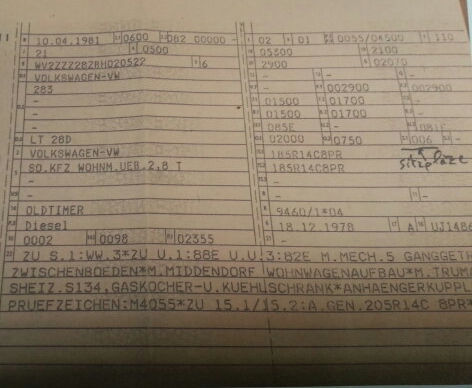 10.04.1981 0600 082 00000 - 02 01 0055/04500 110
21 0500 05500 2100
WV2ZZZ28ZRH020522 6 2900 02070
VOLKSWAGEN-VW - - -
283 - 002900 002900
- 01500 01700 -
- 01500 01700 -
- D85E -
LT 28D 02000 0750 006 -
VOLKSWAGEN-VW 185R14C8PR Sitzplätze
SO.KFZ WOHNM.UEB.2,8 T 185R14C8PR
- -
- - -
OLDTIMER 9460/1*04
Diesel 18.12.1978 A UJ1486
0002 0098 02355
ZU S.1:WW.3*ZU U.1:88E U.U.3:82E M.MECH.5 GANGGETR
ZWISCHENBOEDEN*M.MIDDENDORF WOHNWAGENAUFBAU*M.TRUM
SHEIZ.S134,GASKOCHER-U.KUEHLSCHRANK*ANHAENGERKUPPL
PRUEFZEICHEN:M4055*ZU 15.1/15.2:A.GEN.205R14C 8PR